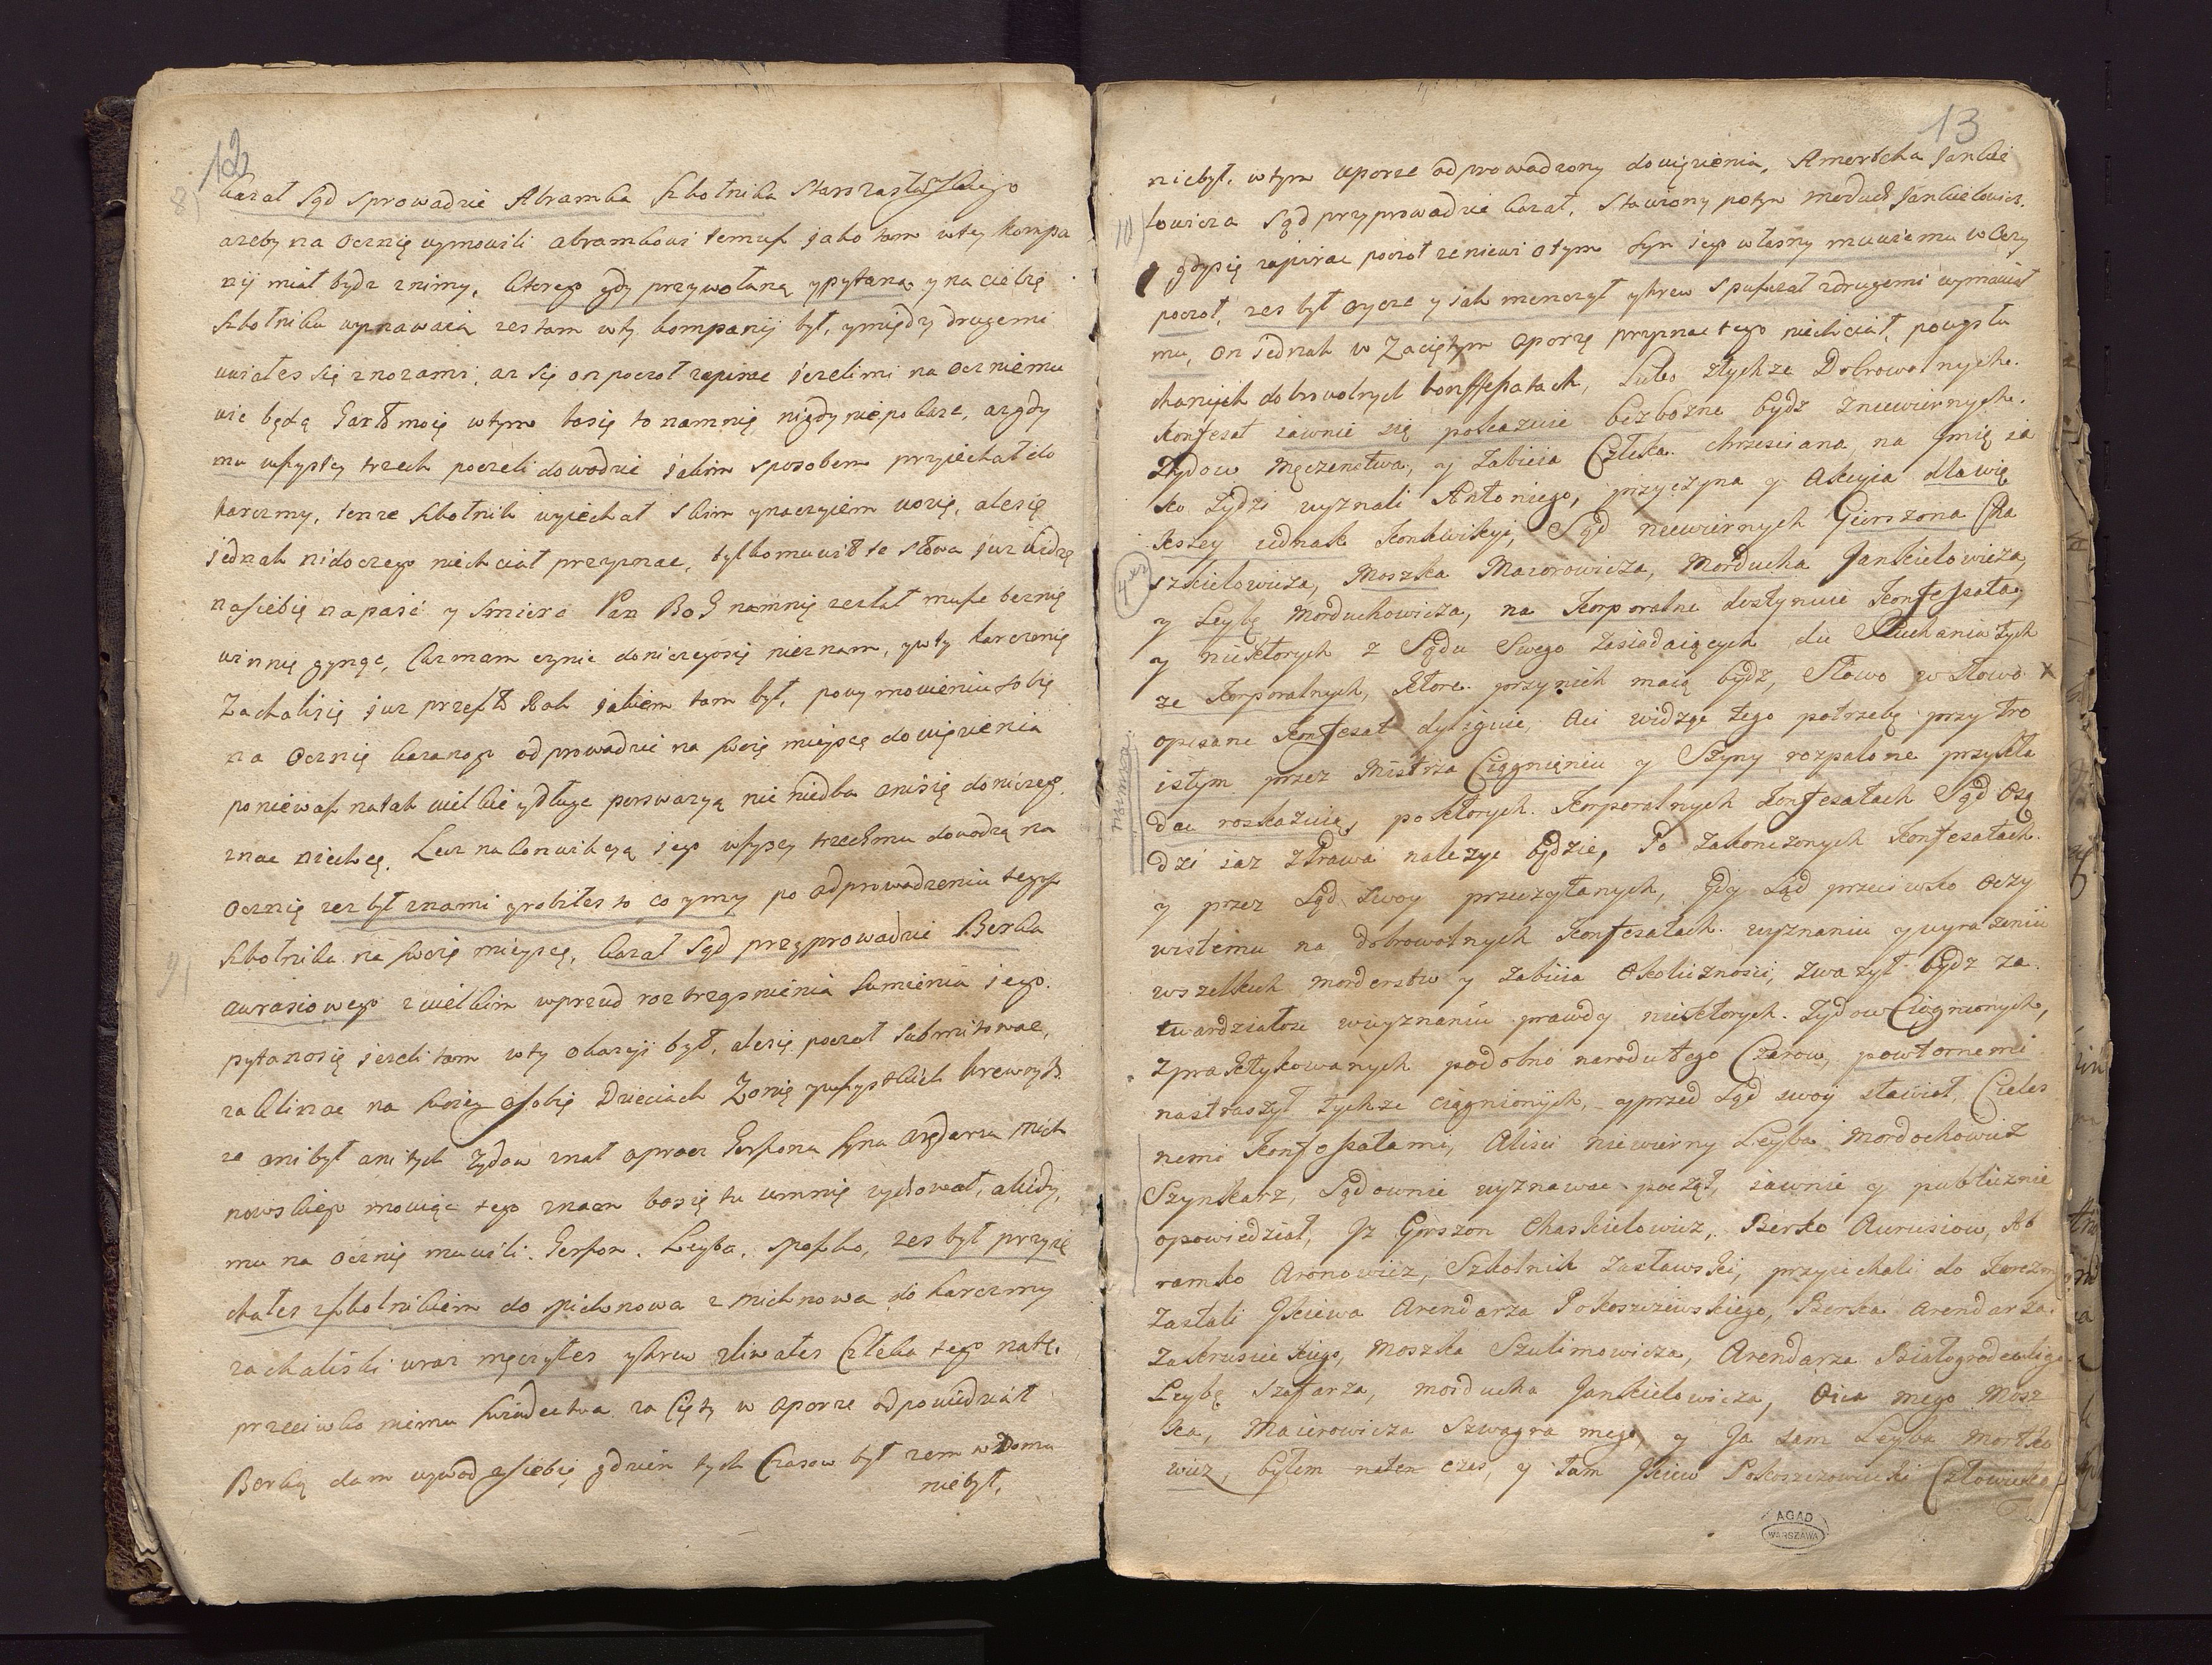 12
8)
kazał Sąd sprowadzić Abramka szkolnika Starozasławskiego
azeby na Ocznię wymowili abramkowi temuż jako tam wtey kompa
nij miał bydz znimy, ktorego gdy przywołaną ypytana y na ciebię
szkolniku wyznawaią zes tam wty kompanij był, ymiędzy drugemi
uwiałes się znozami, az się on poczoł zapirac jezelimi na oczniemu
wic będą Garło moię wtym bosię to namnię nigdy niepokaze, azgdy
mu wszyscy trzech poczeli dowodzic jakim sposobem przyiechał do
karczmy, tenze szkolnik wyiechał skim ynaczyiem wozię, alesię
jednak nidoczego niechciał przyznac, tylkomuwił te słowa juz widzę
nasiebię napaść y smierc Pan BoG namnię zesłał muszę beznię
winnię gynąc, Coz mam czynic doniczegosię nieznam, ywty karczmię
Zachaliśię juz przeszło Rok jakiem tam był, powymowieniu sobię
na Ocznię kazanogo odprowadzic na swoię miejscę dowięzienia
poniewasz natak wielkie ydługe perswazyą nie niedba anisię doniczego
znac niechcę. Lecz nakonwikcyą jego wszyscy trzechmu dowodzą na
Ocznię zes był znami yrobiłes to co ymy po odprowadzeniu tegosz
9)
szkolnika na swoię mieyscę, kazał Sąd przyprowadzic Berka
awrasiowego zwielkim wprzud roztrzęsnienia sumienia jego.
pytanosię jezeli tam wty okazyi był, alesię poczoł submitowac,
zaklinac na swoiey osobię Dzieciach Zonię ywszystkich krewnych
ze anibył ani tych Zydow znał oprocz Gerszona syna arędarza Mich
nowskiego mowiąc tego znam bosię tu umnię wychował, akidy,
mu na ocznię muwili Gerszon, Leyba, Moszko, zes był przyie
chałes zszkolnikiem do Michnowa z Michnowa do karczmy
zachaliski wraz męczyłes ykrew zliwałes Człeka tego natę,
przeciwko niemu swiadectwa za Cięty w uporze odpowiedział
Berką dam wywod osiebię gdziem tych Czasow był zem w Domu
niebył,
13
niebył, wtym uporze odprowadzony dowięzienia, Amordcha Jankie
10)
lowicza Sąd przyprowadzic kazał, stawiony potym Morduch Jankielowicz.
gdysię zapirac poczoł zeniewi otym Syn jego własny muwiemu woczy
poczoł, zes był oycze y jak menczył ykrew spuszczał zdrugemi wymawiał
mu, on jednak w Zaciętym uporzę przyznac tego niechciał, powysłu
chanijch dobrowolnych konffessatach, Lubo ztychze Dobrowolnych.
Konfesat iawnie się pokazuie bezbozne bydz zniewiernych.
Zydow Męczenstwa, y Zabicia Człeka chrzescianą, na Jmię ia
ko Zydzi wyznali Antoniego, przyczyna y Akcyia dla wię
kszey iednak Konwikcyi, Sąd niewiernych Gierszona Cha
4to
szkielowicza, Moszka Maiorowicza, Morducha Jankielowicza,
y Leybę Morduchowicza, na Korporalne destynuie Konfessata,
y niektorych z Sądu Swego zasiadaiących do słuchania tych
ze Korporalnych, ktore przynich maią bydz, Słowo wsłowo x
opisane Konfesat dyliguie, Aci widząc tego potrzebę przy tro
numero.
istym przez Mistrza Ciągnięniu y Szyny rozpalone przykła
dac roskazuię, poktorych Korporalnych Konfesatach Sąd Osą
dzi iaz zPrawa nalezyc będzie, Po zakonczonych Konfesatach.
y przez Sąd swoy przeczytanych, Gdy Sąd przeciwko oczy
wistemu na dobrowolnych Konfesatach wyznaniu ywyrazeniu
wszelkich morderstw y zabicia Okolicznosci, zwazył bydz za.
twardziałosc wwyznaniu prawdy niektorych Zydow Ciągnionych,
zpraktykowanych podobno narodutego Czarow, powtornemi
nastraszył tychze ciągnionych, yprzed Sąd swoy stawiał, Cieles
nemi Konfessatami, Aliści niewierny Leyba Mordochowicz
Szynkarz, Sądownie wyznawac począł, iawnie y publicznie
opowiedział, Jz Gerszon Chaskielowicz, Berko Aurusiow, Ab
ramko Aronowicz, Szkolnik Zasławski, przyiechali do Karczmy
Zastali Jciewa Arendarza Pokoszczewskiego, Berka Arendarza.
Zakrusieckiego, Moszka Szulimowicza, Arendarza Białogrodeckiego
Leybę Szafarza, Morducha Jankielowicza, Oica mego Mosz
ka, Maierowicza Szwagra mego y Ja sam Leyba Mortko
wicz, byłem naten czas, y tam Jciew Pokoszczowiecki Człowieka
AGAD
WARSZAWA